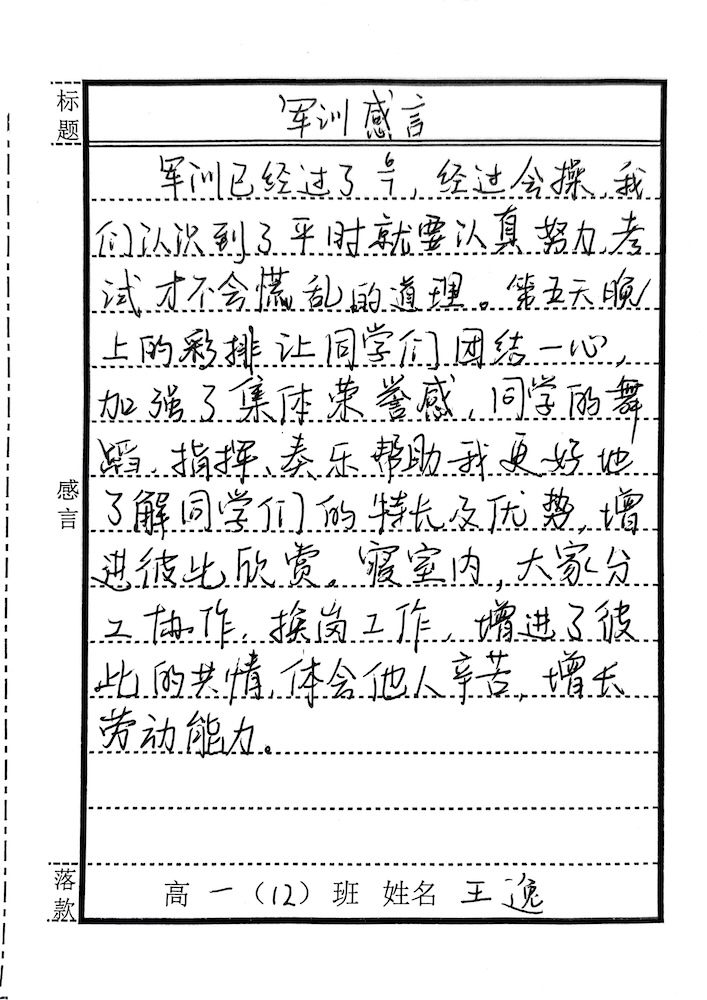 标题
军训感言
军训已经过了,经过会操,我
们认识到了平时就要认真努力,考
试才不会慌乱的道理。第五天晚
上的彩排让同学们团结一心,
加强了集体荣誉感,同学的舞
蹈、指挥、奏乐帮助我更好地
了解同学们的特长及优势,增
进彼此欣赏。寝室内,大家分
工协作,换岗工作,增进了彼
此的共情,体会他人辛苦,增长
劳动能力。
感言
落款
高一(12)班 姓名 王逸